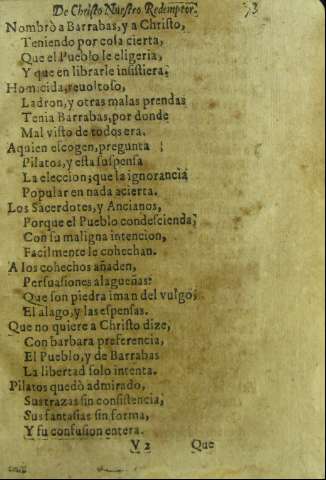 De Christo Nuestro Redemptor. 73
Nombrò a Barrabas, y a Christo,
Teniendo por cosa cierta,
Que el Pueblo le eligeria,
Y que en librarle insistiera:
Homicida, reuoltoso,
Ladron, y otras malas prendas
Tenia Barrabas, por donde
Mal visto de todos era.
Aquien escogen, pregunta
Pilatos, y esta suspensa
La eleccion; que la ignorancia
Popular en nada acierta.
Los Sacerdotes, y Ancianos,
Porque el Pueblo condescienda,
Con su maligna intencion,
Facilmente le cohechan.
A los cohechos añaden,
Persuasiones alagueñas:
Que son piedra iman del vulgo,
El alago, y las espensas.
Que no quiere a Christo dize,
Con barbara preferencia,
El Pueblo, y de Barrabas
La libertad solo intenta.
Pilatos quedò admirado,
Sus trazas sin consistencia,
Sus fantasias sin forma,
Y su confusion entera.
V 2 Que